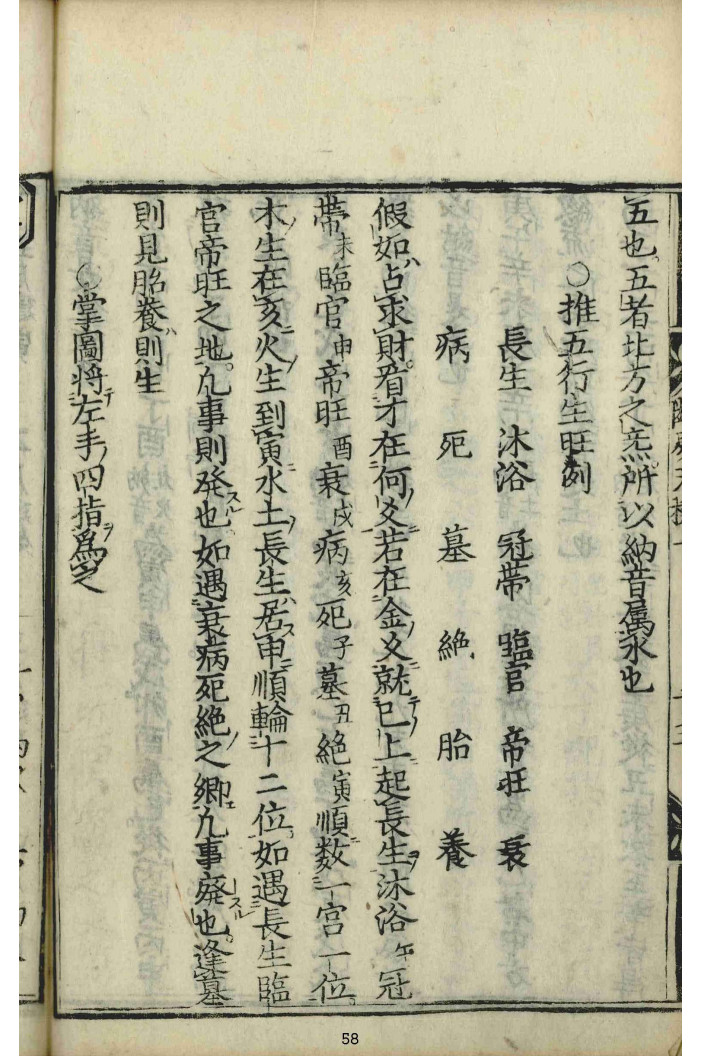 五也五者北方之炁所以納音属水也
○推五行生旺例
長生 沐浴 冠帯 臨官 帝旺 衰
病 死 墓 絶 胎 養
假如占求財看才在何爻若在金爻就巳上起長生沐浴午冠
帯未臨官申帝旺酉衰戌病亥死子墓丑絶寅順数一宮一位
木生在亥火生到寅水土長生居申順輪十二位如遇長生臨
官帝旺之地凡事則発也如遇衰病死絶之郷凡事廃也逢墓
則見胎養則生
○掌圖将左手四指為之
58